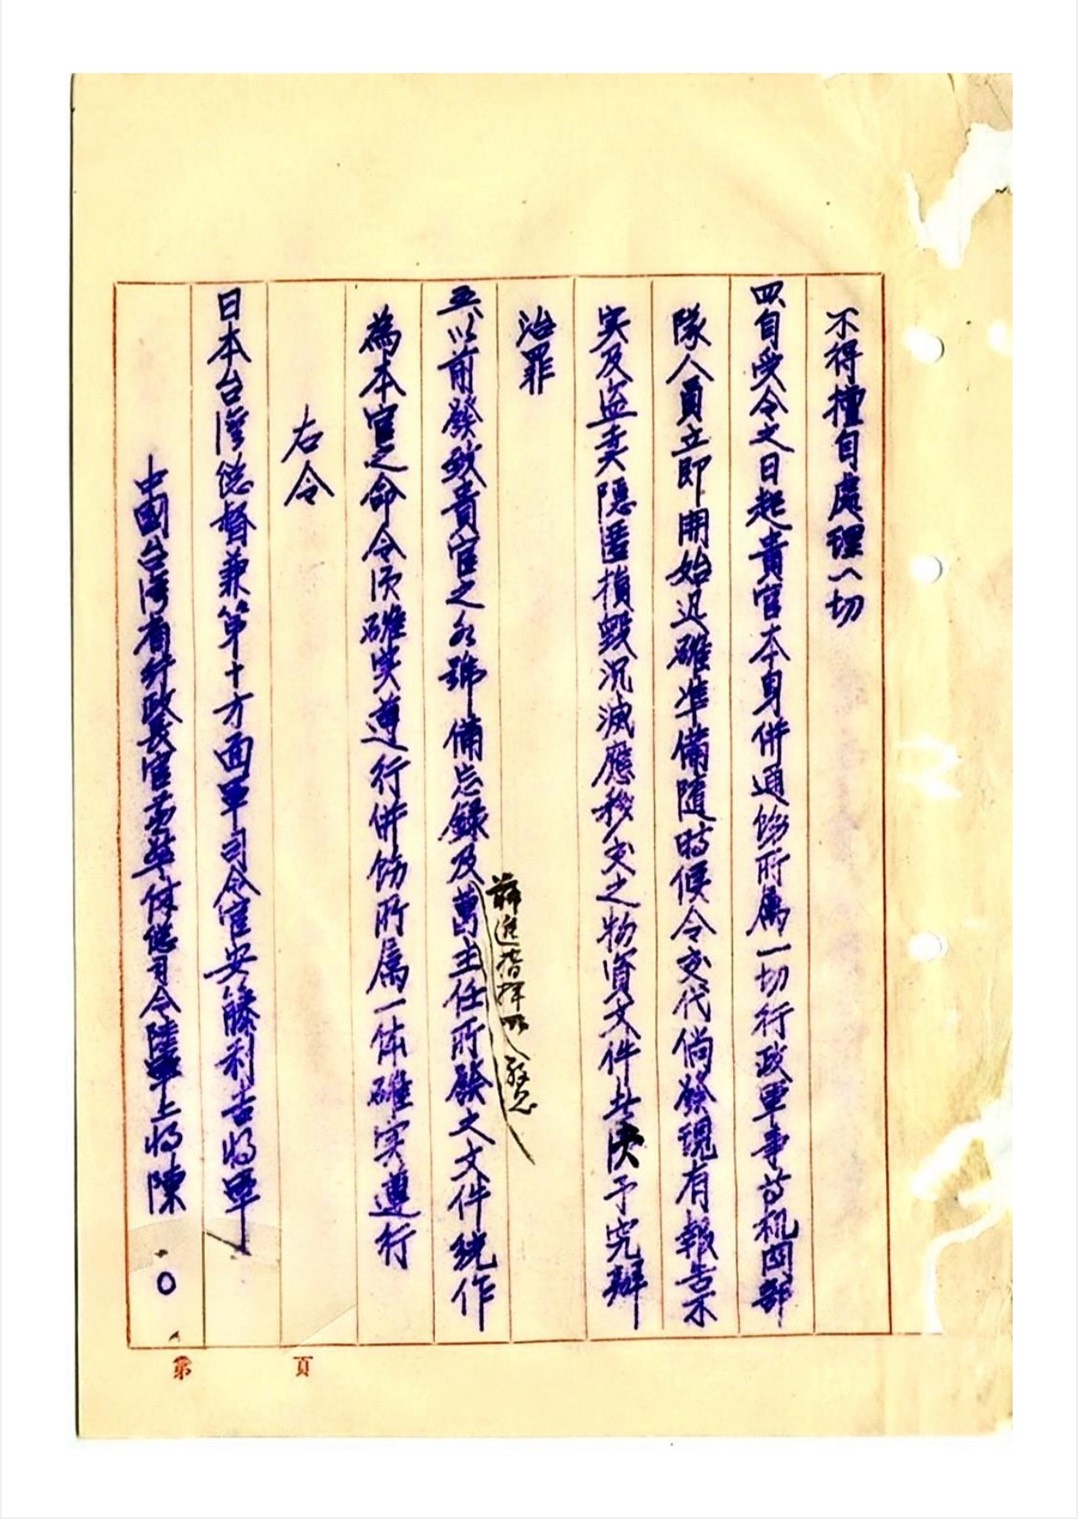 不得擅自處理一切
四、自受令之日起貴官本身併通飭所属一切行政軍事等机関部
隊人員立即開始迅確準備随時候令交代倘發現有報告不
实及盗卖隐匿損毀沉滅應移交之物資文件者决予究辦
治罪
五、以前發致貴官之各號備忘録及葛主任所發之文件統作
前進指揮所
為本官之命令須確実遵行併飭所属一体確实遵行
右令
日本台灣總督兼第十方面軍司令官安籐利吉将軍
中國台湾省行政長官兼警備總司令陸軍上将陳〇
第 頁